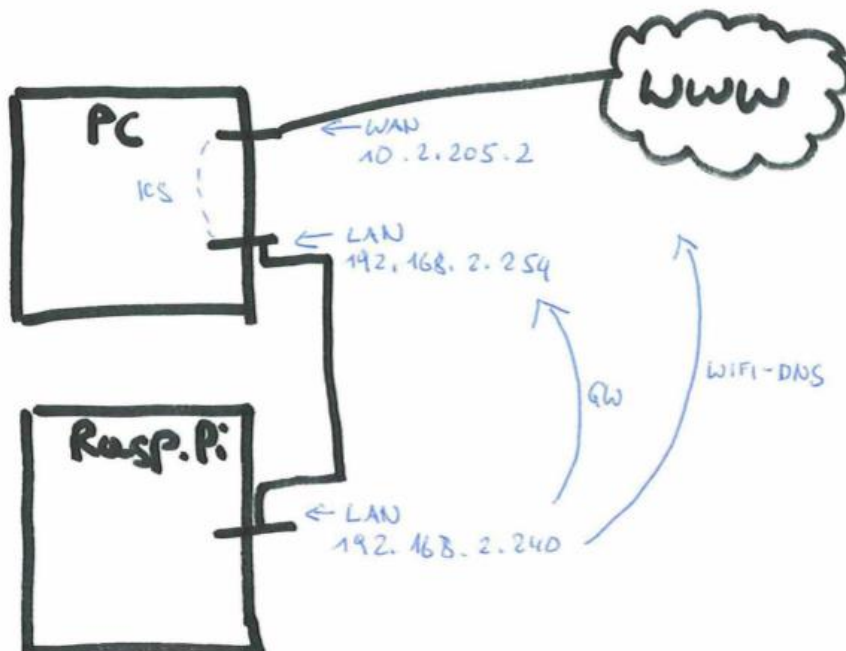 PC
WWW
← WAN
10.2.205.2
ICS
← LAN
192.168.2.254
WIFI-DNS
GW
Rasp.Pi
← LAN
192.168.2.240